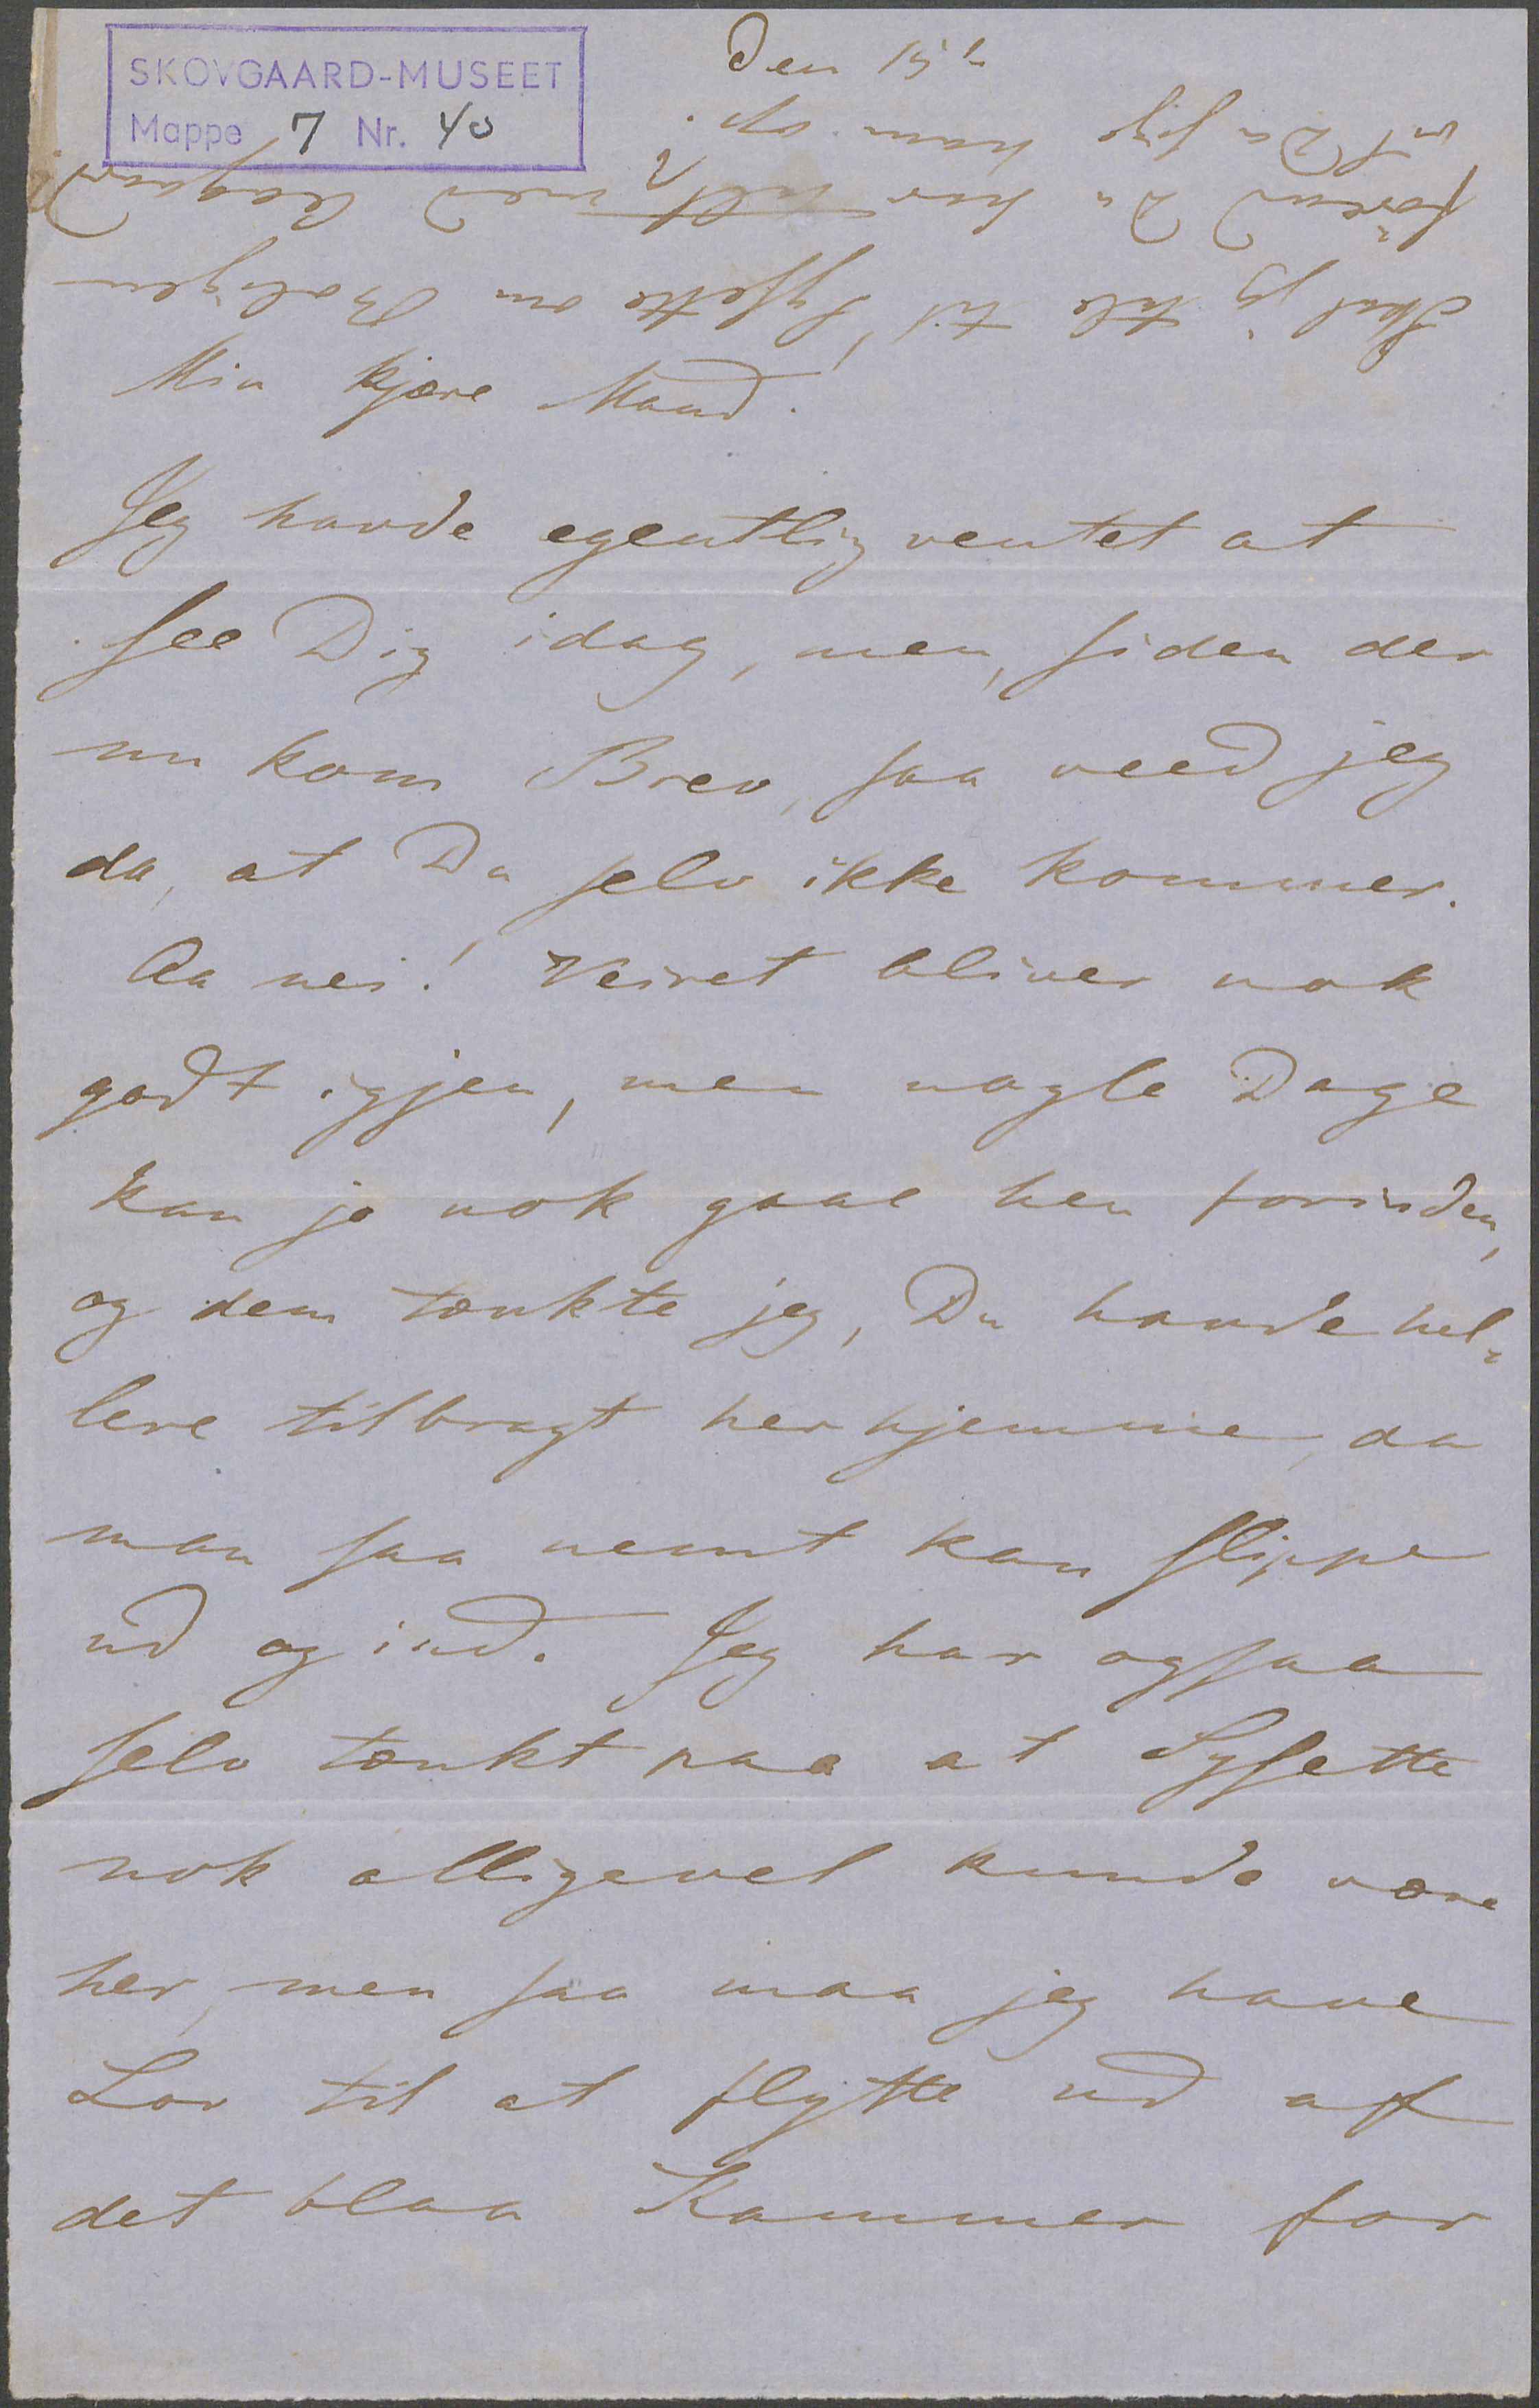 SKOVGAARD-MUSEET
Mappe 7 Nr. 40
Den 15de
Skal jeg tale til Lysette om Boligen
förend Du har talt med Aagaard?
vil Du søge ham op.
Min kjære Mand.
Jeg havde egentlig ventet at
see Dig idag, men, siden der
nu kom Brev, saa veed jeg
da, at Du selv ikke kommer.
Aa nei! Veiret bliver nok
godt igjen, men nogle Dage
kan jo nok gaae hen forinden,
og dem tænkte jeg, Du havde hel-
lere tilbragt herhjemme, da
man saa nemt kan slippe
ud og ind. Jeg har ogsaa
selv tænkt paa at Lysette
nok alligevel kunde være
her, men saa maa jeg have
Lov til at flytte ud af
det blaa Kammer for